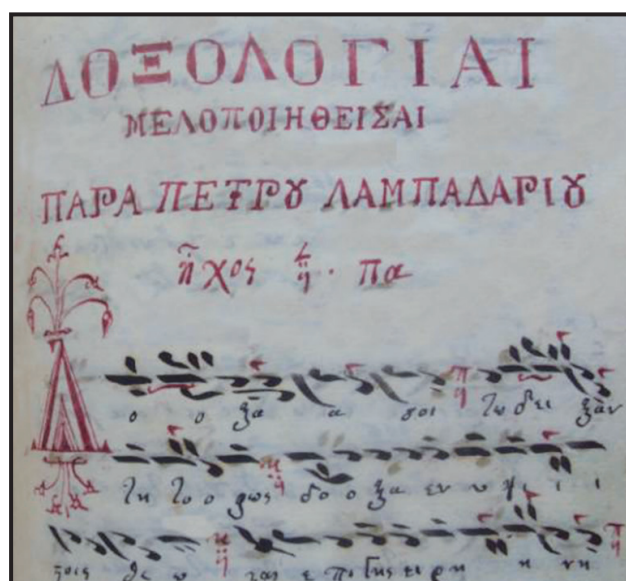 ΔΟΞΟΛΟΓΙΑΙ
ΜΕΛΟΠΟΙΗΘΕΙΣΑΙ
ΠΑΡΑ ΠΕΤΡȢ ΛΑΜΠΑΔΑΡΙȢ
ἦχος πα
Δ ο ο ξα α σοι τω δει ξαν
τι το ο φως δο ο ξα εν υ ψι ι ι
ξοις θε ω και ε πι γης ει ρη η νη